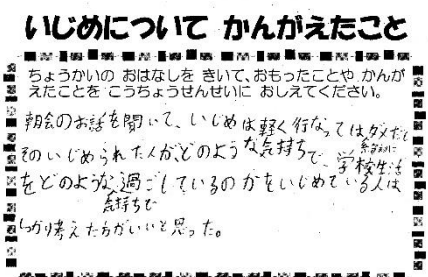 いじめについて かんがえたこと
ちょうかいの おはなしを きいて、おもったことや かんが
えたことを こうちょうせんせいに おしえてください。
朝会のお話を聞いて、いじめは軽く行なってはダメだし
絶対に
そのいじめられた人が、どのような気持ちで、学校生活
をどのような過ごしているのかをいじめている人は
気持ちで
しっかり考えた方がいいと思った。